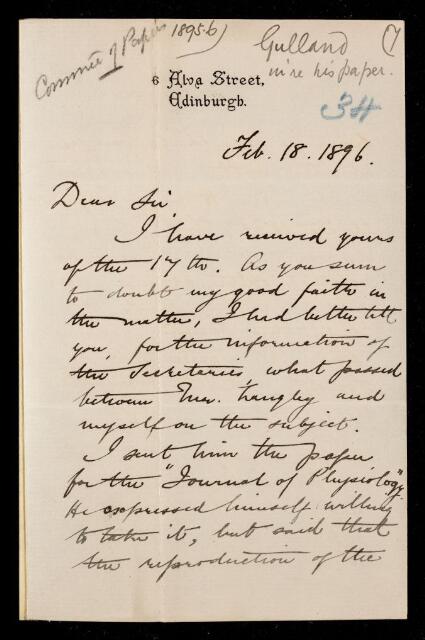 Committee of Papers 1895-6)
Gulland
in re his paper.
34
6 Alva Street,
Edinburgh.
Feb. 18. 1896.
Dear Sir,
I have received yours
of the 17th. As you seem
to doubt my good faith in
the matter, I had better tell
you, for the information of
the Secretaries, what passed
between Langley and
myself on the subject.
I sent him the paper
for the "Journal of Physiology".
He expressed himself willing
to take it, but said that
the reproduction of the